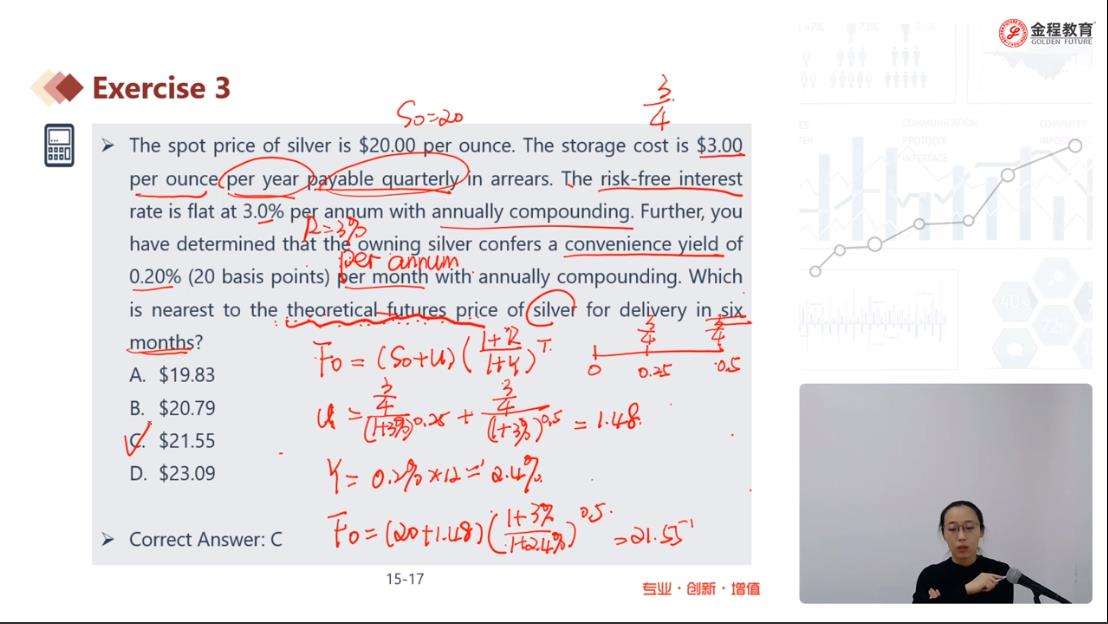 金程教育
GOLDEN FUTURE
Exercise 3
S₀=20
3/4
➢ The spot price of silver is $20.00 per ounce. The storage cost is $3.00
per ounce per year payable quarterly in arrears. The risk-free interest
rate is flat at 3.0% per annum with annually compounding. Further, you
R=3%
have determined that the owning silver confers a convenience yield of
per annum
0.20% (20 basis points) per month with annually compounding. Which
is nearest to the theoretical futures price of silver for delivery in six
months?
F₀ = (S₀+U)((1+R)/(1+Y))^T
3/4 3/4
0 0.25 0.5
A. $19.83
B. $20.79
U = (3/4)/(1+3%)^0.25 + (3/4)/(1+3%)^0.5 = 1.48
C. $21.55
D. $23.09
Y = 0.2%*12 = 2.4%
F₀ = (20+1.48)((1+3%)/(1+2.4%))^0.5 = 21.55
➢ Correct Answer: C
15-17
专业·创新·增值